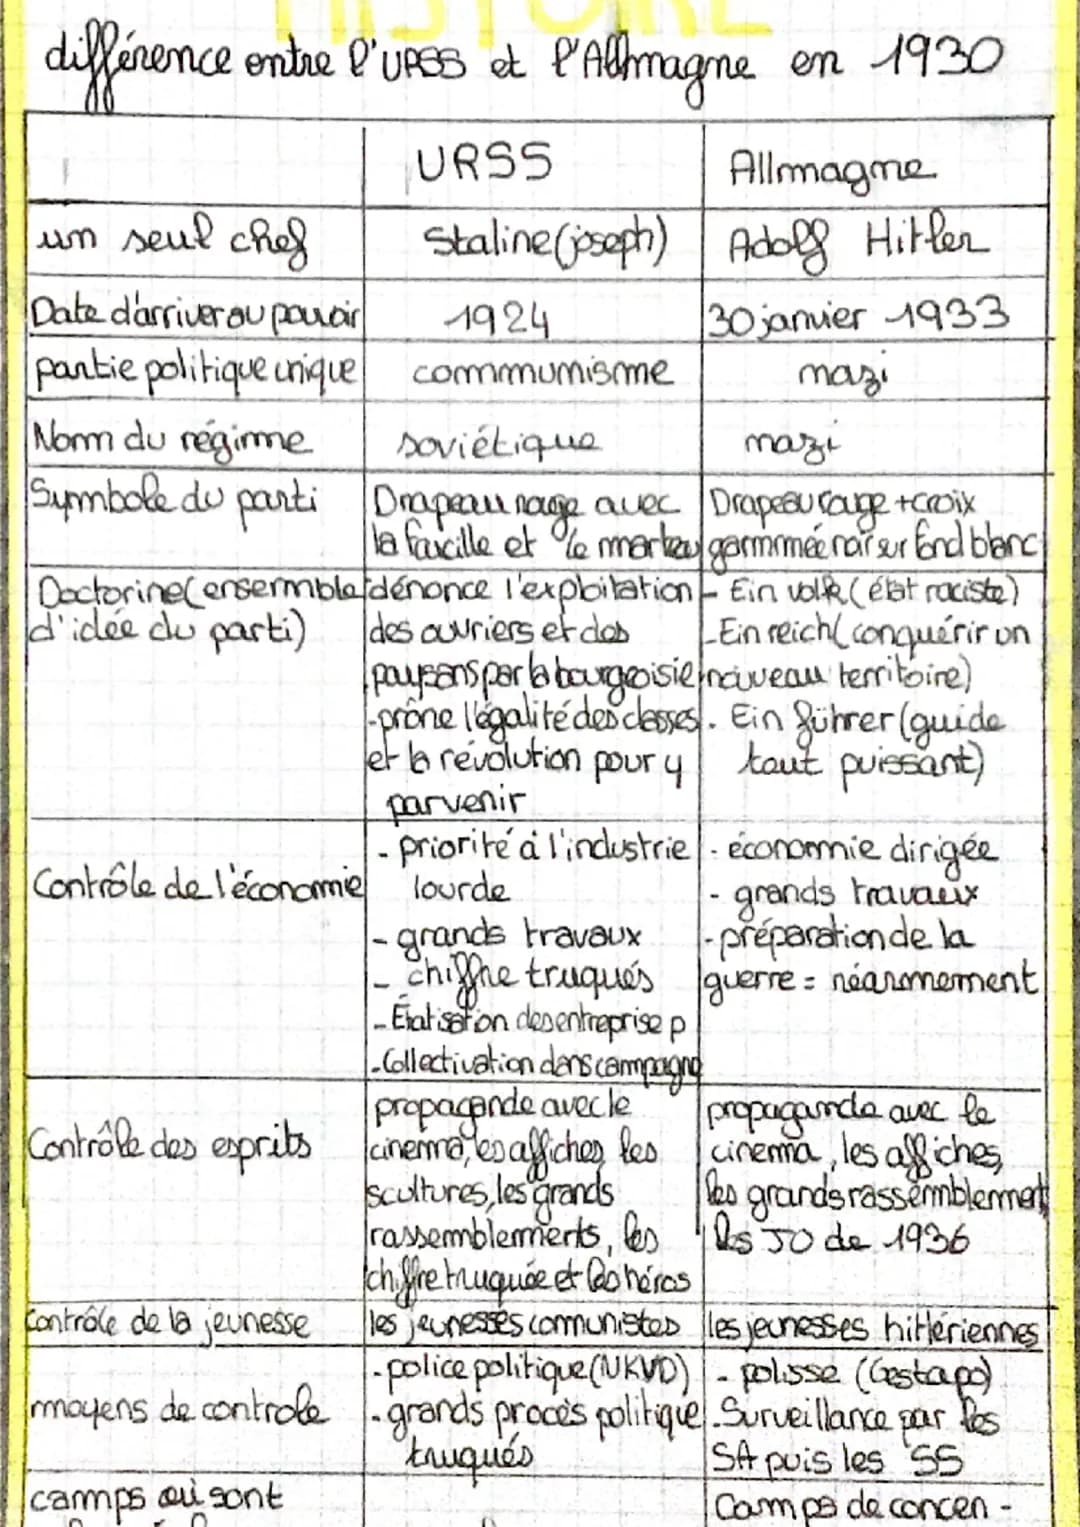 HISTOIRE
différence entre l'URSS et l'Allmagne en 1930
URSS
Allmagne
un seul chef
Staline (joseph)
Adolf Hitler
Date d'arriver au pouvoir
1924
30 janvier 1933
partie politique unique
communisme
nazi
Nom du régime
soviétique
nazi
Symbole du parti
Drapeau rouge avec
la faucille et le marteau
Drapeau rouge + croix
gammée noir sur fond blanc
Doctorine (ensemble
d'idée du parti)
dénonce l'exploitation
des ouvriers et des
paysans par la bourgeoisie
- prône l'égalité des classes
et la révolution pour y
parvenir
- Ein volk (état raciste)
- Ein reich (conquérir un
nouveau territoire)
- Ein führer (guide
tout puissant)
Contrôle de l'économie
- priorité à l'industrie
lourde
- grands travaux
- chiffre truqués
- Étatisation des entreprise p
- Collectivation dans campagne
- économie dirigée
- grands travaux
- préparation de la
guerre = réarmement
Contrôle des esprits
propagande avec le
cinema, les affiches, les
scultures, les grands
rassemblements, les
chiffre truquée et les héros
propaganda avec le
cinema, les affiches,
les grands rassemblement
les JO de 1936
Contrôle de la jeunesse
les jeunesses communistes
les jeunesses hitlériennes
moyens de controle
- police politique (NKVD)
- grands procès politique
truqués
- polisse (Gestapo)
- Surveillance par les
SA puis les SS
camps où sont
Camps de concen-